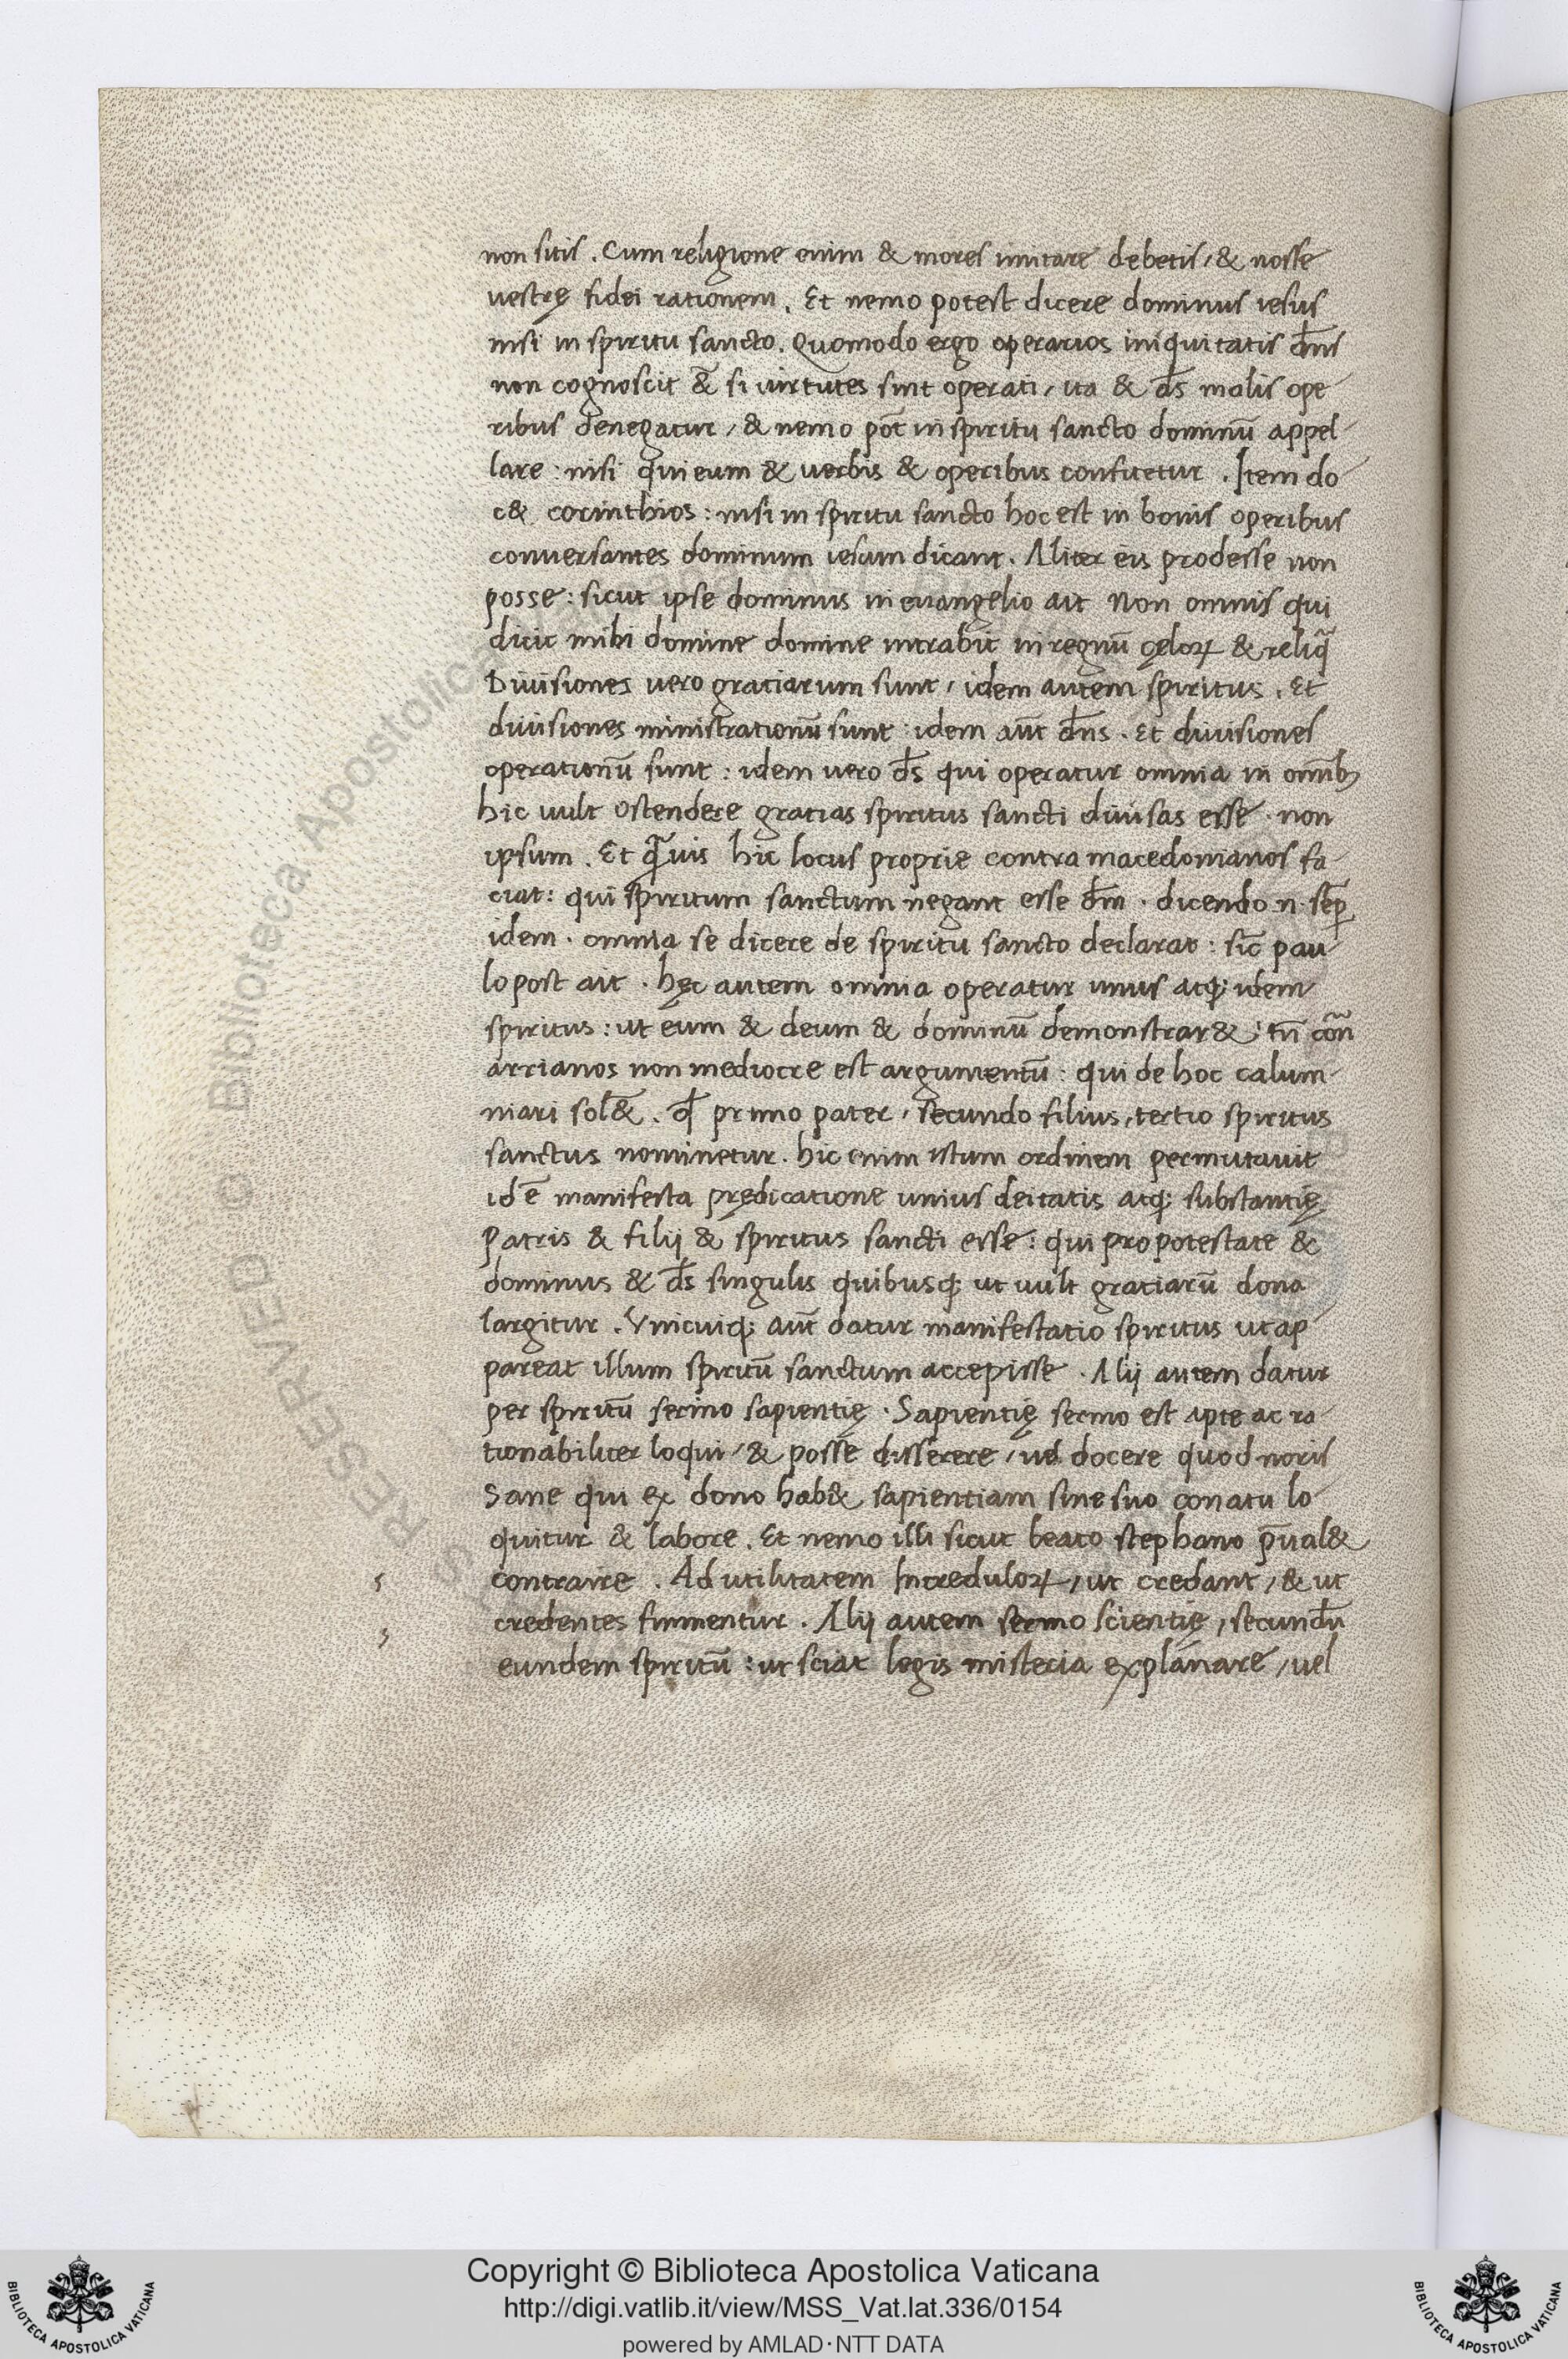 non sitis . Cum religione enim & mores imitare debetis / & nosse
uestrę fidei rationem . Et nemo potest dicere dominus iesus
nisi in spiritu sancto . Quomodo ergo operarios iniquitatis dn̄s
non cognoscit & si uirtutes sint operati / ita & ds̄ malis ope
ribus denegatur / & nemo pōt in spiritu sancto dominū appel
lare : nisi qui eum & uerbis & operibus confitetur . Item do
c& corinthios : nisi in spiritu sancto hoc est in bonis operibus
conuersantes dominum iesum dicant . Aliter eis prodesse non
posse : sicut ipse dominus in euangelio ait Non omnis qui
dicit mihi domine domine intrabit in regnū cęloꝝ & reliq̄
Diuisiones uero gratiarum sunt / idem autem spiritus . Et
diuisiones ministrationū sunt : idem aūt dn̄s . Et diuisiones
operationū sunt : idem uero ds̄ qui operatur omnia in omīb;
hic uult ostendere gratias spiritus sancti diuisas esse . non
ipsum . Et q̄uis hic locus proprie contra macedonianos fa
ciat : qui spiritum sanctum negant esse dm̄ . dicendo n̄ sēp
idem . omnia se dicere de spiritu sancto declarat : sīc pau
lo post ait . hęc autem omnia operatur unus atq; idem
spiritus : ut eum & deum & dominū demonstrar& : tn̄ cōn
arrianos non mediocre est argumentū : qui de hoc calum
niari sol&̄ . qđ primo pater / secundo filius / tertio spiritus
sanctus nominetur . hic enim istum ordinem permutauit
id ē manifesta prędicatione unius deitatis atq; substantię
patris & filij & spiritus sancti esse : qui pro potestate &
dominus & ds̄ singulis quibusq; ut uult gratiarū dona
largitur . Vnicuiq; aūt datur manifestatio spiritus ut ap
pareat illum spiritū sanctum accepisse . Alij autem datur
per spiritū sermo sapientię . Sapientię sermo est apte ac ra
tionabiliter loqui / & posse disserere / uel docere quod noris
Sane qui ex dono hab& sapientiam sine suo conatu lo
quitur & labore . Et nemo illi sicut beato stephano p̄ual&
contraire . Ad utilitatem Increduloꝝ / ut credant / & ut
credentes firmentur . Alij autem sermo scientię / secundū
eundem spiritū : ut sciat legis misteria explanare / uel
Copyright © Biblioteca Apostolica Vaticana
http://digi.vatlib.it/view/MSS_Vat.lat.336/0154
powered by AMLAD·NTT DATA
BIBLIOTECA APOSTOLICA VATICANA
BIBLIOTECA APOSTOLICA VATICANA